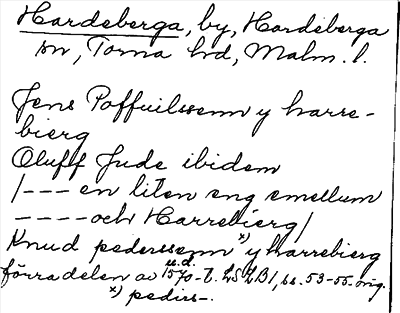 Hardeberga, by, Hardeberga
sn, Torna hd, Malm. l.
Jens Poffuilssenn y harre-
bierg
Oluff Jude ibidem
/--- en liten eng emellum
---- och Harrebierg/
Knud pederssenn x) y harrebierg
u.d.
förra delen av 1570-t. LSLB1, ss. 53-55 orig.
x) peders-.